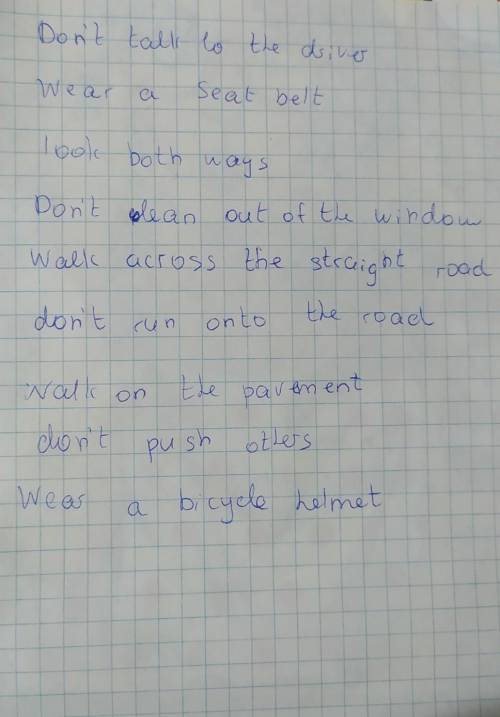 Don't talk to the driver
Wear a seat belt
look both ways
Don't lean out of the window
Walk across the straight road
don't run onto the road
Walk on the pavement
don't push others
Wear a bicycle helmet